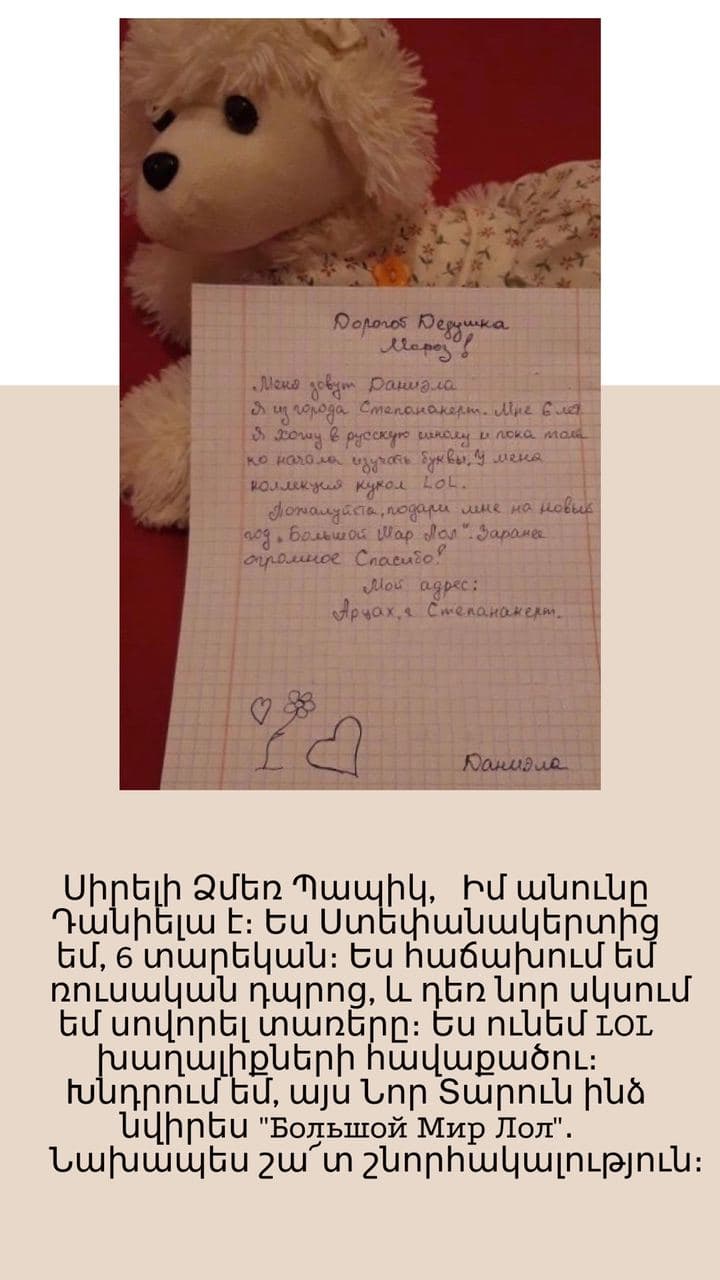 Дорогой Дедушка
Мороз!
Меня зовут Даниэла
Я из города Степанакерт. Мне 6 лет
Я хожу в русскую школу и пока толь
ко начала изучать буквы. У меня
коллекция кукол LOL.
Пожалуйста, подари мне на новый
год „Большой Шар Лол". Заранее
огромное Спасибо!
Мой адрес:
Арцах, г. Степанакерт.
Даниэла
Սիրելի Ձմեռ Պապիկ, Իմ անունը
Դանիելա է։ Ես Ստեփանակերտից
եմ, 6 տարեկան։ Ես հաճախում եմ
ռուսական դպրոց, և դեռ նոր սկսում
եմ սովորել տառերը։ Ես ունեմ LOL
խաղալիքների հավաքածու։
Խնդրում եմ, այս Նոր Տարուն ինձ
նվիրես "Большой Мир Лол".
Նախապես շա՜տ շնորհակալություն։